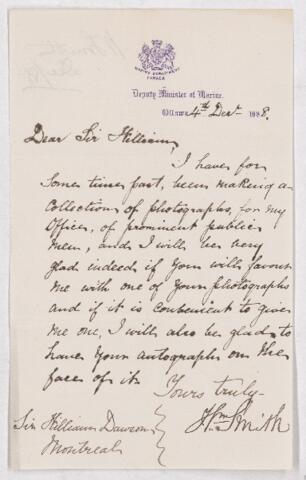 MARINE DEPARTMENT
CANADA
Deputy Minister of Marine.
Ottawa 4th Decr 1888.
Dear Sir William,
I have for
some time past, been making a
Collection of photographs, for my
Office, of prominent public
men, and I will be very
glad indeed if you will favour
me with one of your photographs
and if it is convenient to give
me one, I will also be glad to
have your autograph on the
face of it.
Yours truly
Wm Smith
Sir William Dawson
Montreal